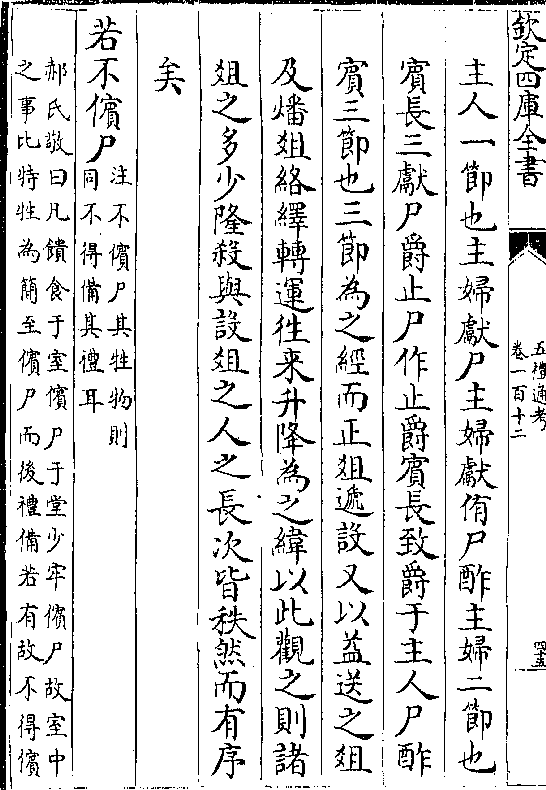 欽定四庫全書
五禮通考
卷一百十二
四十五
主人一節也主婦獻尸主婦獻侑尸酢主婦二節也
賓長三獻尸爵止尸作止爵賓長致爵于主人尸酢
賓三節也三節為之經而正俎遞設又以益送之俎
及燔俎絡繹轉運往来升降為之緯以此觀之則諸
俎之多少隆殺與設俎之人之長次皆秩然而有序
矣
若不儐尸
注不儐尸其牲物則
同不得備其禮耳
郝氏敬曰凡饋食于室儐尸于堂少牢儐尸故室中
之事比特牲為簡至儐尸而後禮備若有故不得儐